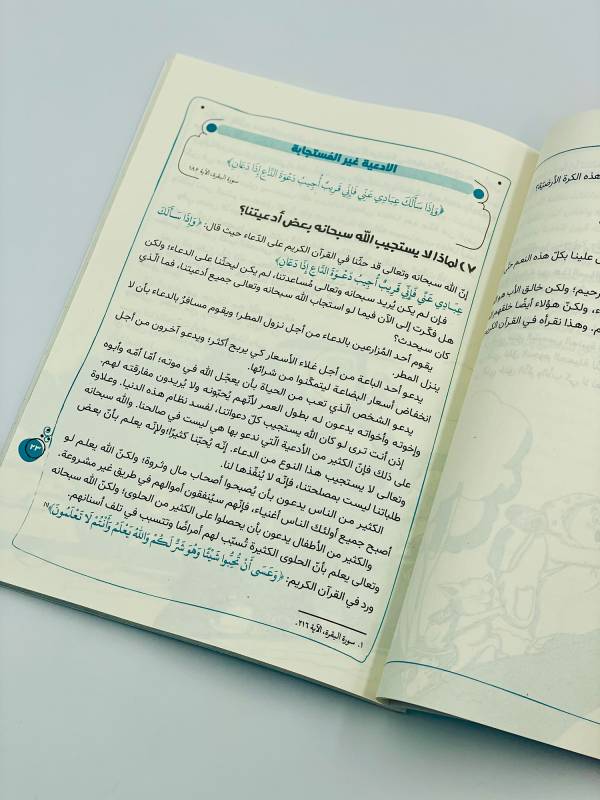 الأدعية غير المُستجابة
﴿وَإِذَا سَأَلَكَ عِبَادِي عَنِّي فَإِنِّي قَرِيبٌ أُجِيبُ دَعْوَةَ الدَّاعِ إِذَا دَعَانِ﴾
سورة البقرة، الآية ١٨٦
٧) لماذا لا يستجيب الله سبحانه بعض أدعيتنا؟
إنّ الله سبحانه وتعالى قد حثّنا في القرآن الكريم على الدّعاء حيث قال: ﴿وَإِذَا سَأَلَكَ
عِبَادِي عَنِّي فَإِنِّي قَرِيبٌ أُجِيبُ دَعْوَةَ الدَّاعِ إِذَا دَعَانِ﴾
فإن لم يكن يُريد سبحانه وتعالى مُساعدتنا، لم يكن ليحثّنا على الدعاء؛ ولكن
هل فكّرت إلى الآن فيما لو استجاب الله سبحانه وتعالى جميع أدعيتنا، فما الّذي
كان سيحدث؟
يقوم أحد المُزارعين بالدعاء من أجل نزول المطر؛ ويقوم مسافرٌ بالدعاء بأن لا
ينزل المطر.
يدعو أحد الباعة من أجل غلاء الأسعار كي يربح أكثر؛ ويدعو آخرون من أجل
انخفاض أسعار البضاعة ليتمكّنوا من شرائها.
يدعو الشخص الّذي تعب من الحياة بأن يعجّل الله في موته؛ أمّا أمّه وأبوه
وإخوته وأخواته يدعون له بطول العمر لأنّهم يُحبّونه ولا يُريدون مفارقته لهم.
إذن أنت ترى لو كان الله يستجيب كلّ دعواتنا، لفسد نظام هذه الدنيا. وعلاوة
على ذلك فإنّ الكثير من الأدعية الّتي ندعو بها هي ليست في صالحنا. والله سبحانه
وتعالى لا يستجيب هذا النوع من الدعاء. إنّه يُحبّنا كثيرًا؛ ولأنّه يعلم بأنّ بعض
طلباتنا ليست بمصلحتنا، فإنّه لا يُنفّذها لنا.
الكثير من الناس يدعون بأن يُصبحوا أصحاب مال وثروة؛ ولكنّ الله يعلم لو
أصبح جميع أولئك الناس أغنياء، فإنّهم سيُنفقون أموالهم في طريق غير مشروعة.
والكثير من الأطفال يدعون بأن يحصلوا على الكثير من الحلوى؛ ولكنّ الله سبحانه
وتعالى يعلم بأنّ الحلوى الكثيرة تُسبّب لهم أمراضًا وتتسبب في تلف أسنانهم.
ورد في القرآن الكريم: ﴿وَعَسَى أَنْ تُحِبُّوا شَيْئًا وَهُوَ شَرٌّ لَكُمْ وَاللهُ يَعْلَمُ وَأَنْتُمْ لَا تَعْلَمُونَ﴾
١. سورة البقرة، الآية ٢١٦.
٢٣
هذه الكرة الأرضيّة؟
علينا بكلّ هذه النعم
رحيم؛ ولكن خالق الأب
ولكنّ هؤلاء أيضًا خلقهم
وهذا نقرأه في القرآن الكريم